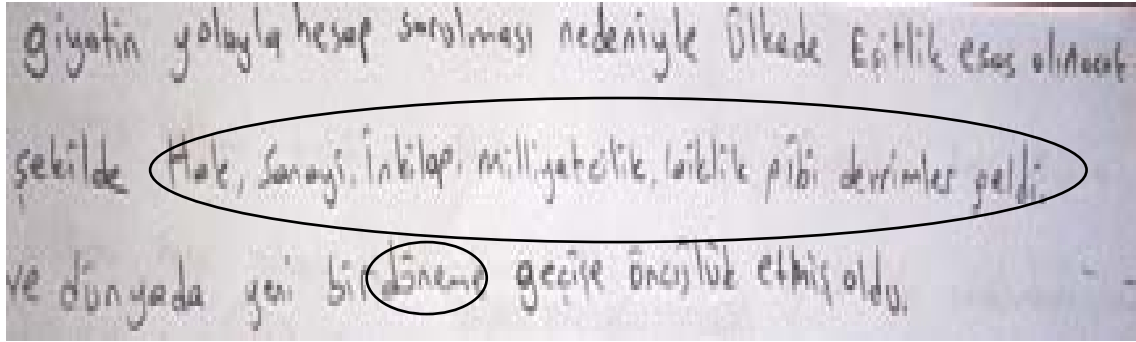 giyotin yoluyla hesap sorulması nedeniyle Ülkede Eşitlik esas alınacak
şekilde Hak, Sanayi, İnkilap, milliyetcilik, laiklik gibi devrimler geldi.
ve dünyada yeni bir döneme geçişe öncülük etmiş oldu.